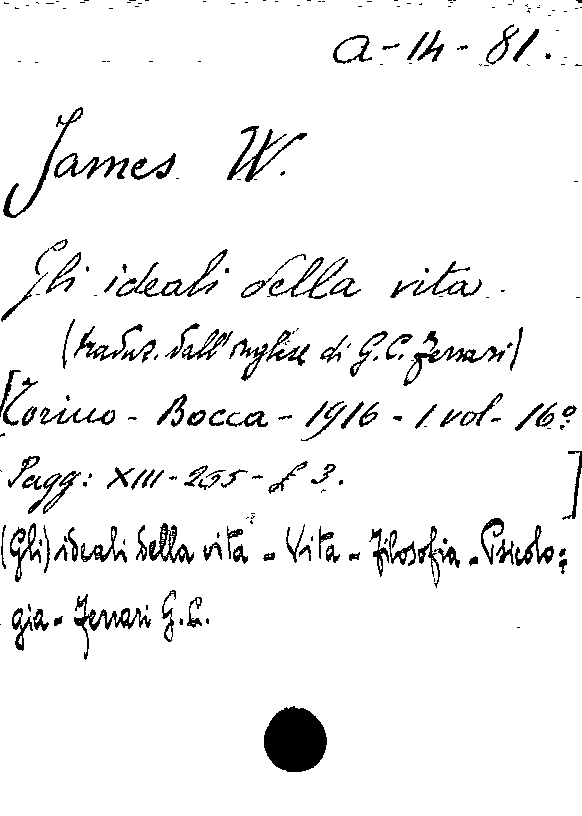 a-14-81.
James W.
Gli ideali della vita.
(traduz. dall'inglese di G.C. Ferrari)
[Torino - Bocca - 1916 - 1 vol - 16º
Pagg: XIII-265 - £ 3. ]
(Gli) ideali della vita - Vita - Filosofia - Psicolo=
gia - Ferrari G.C.